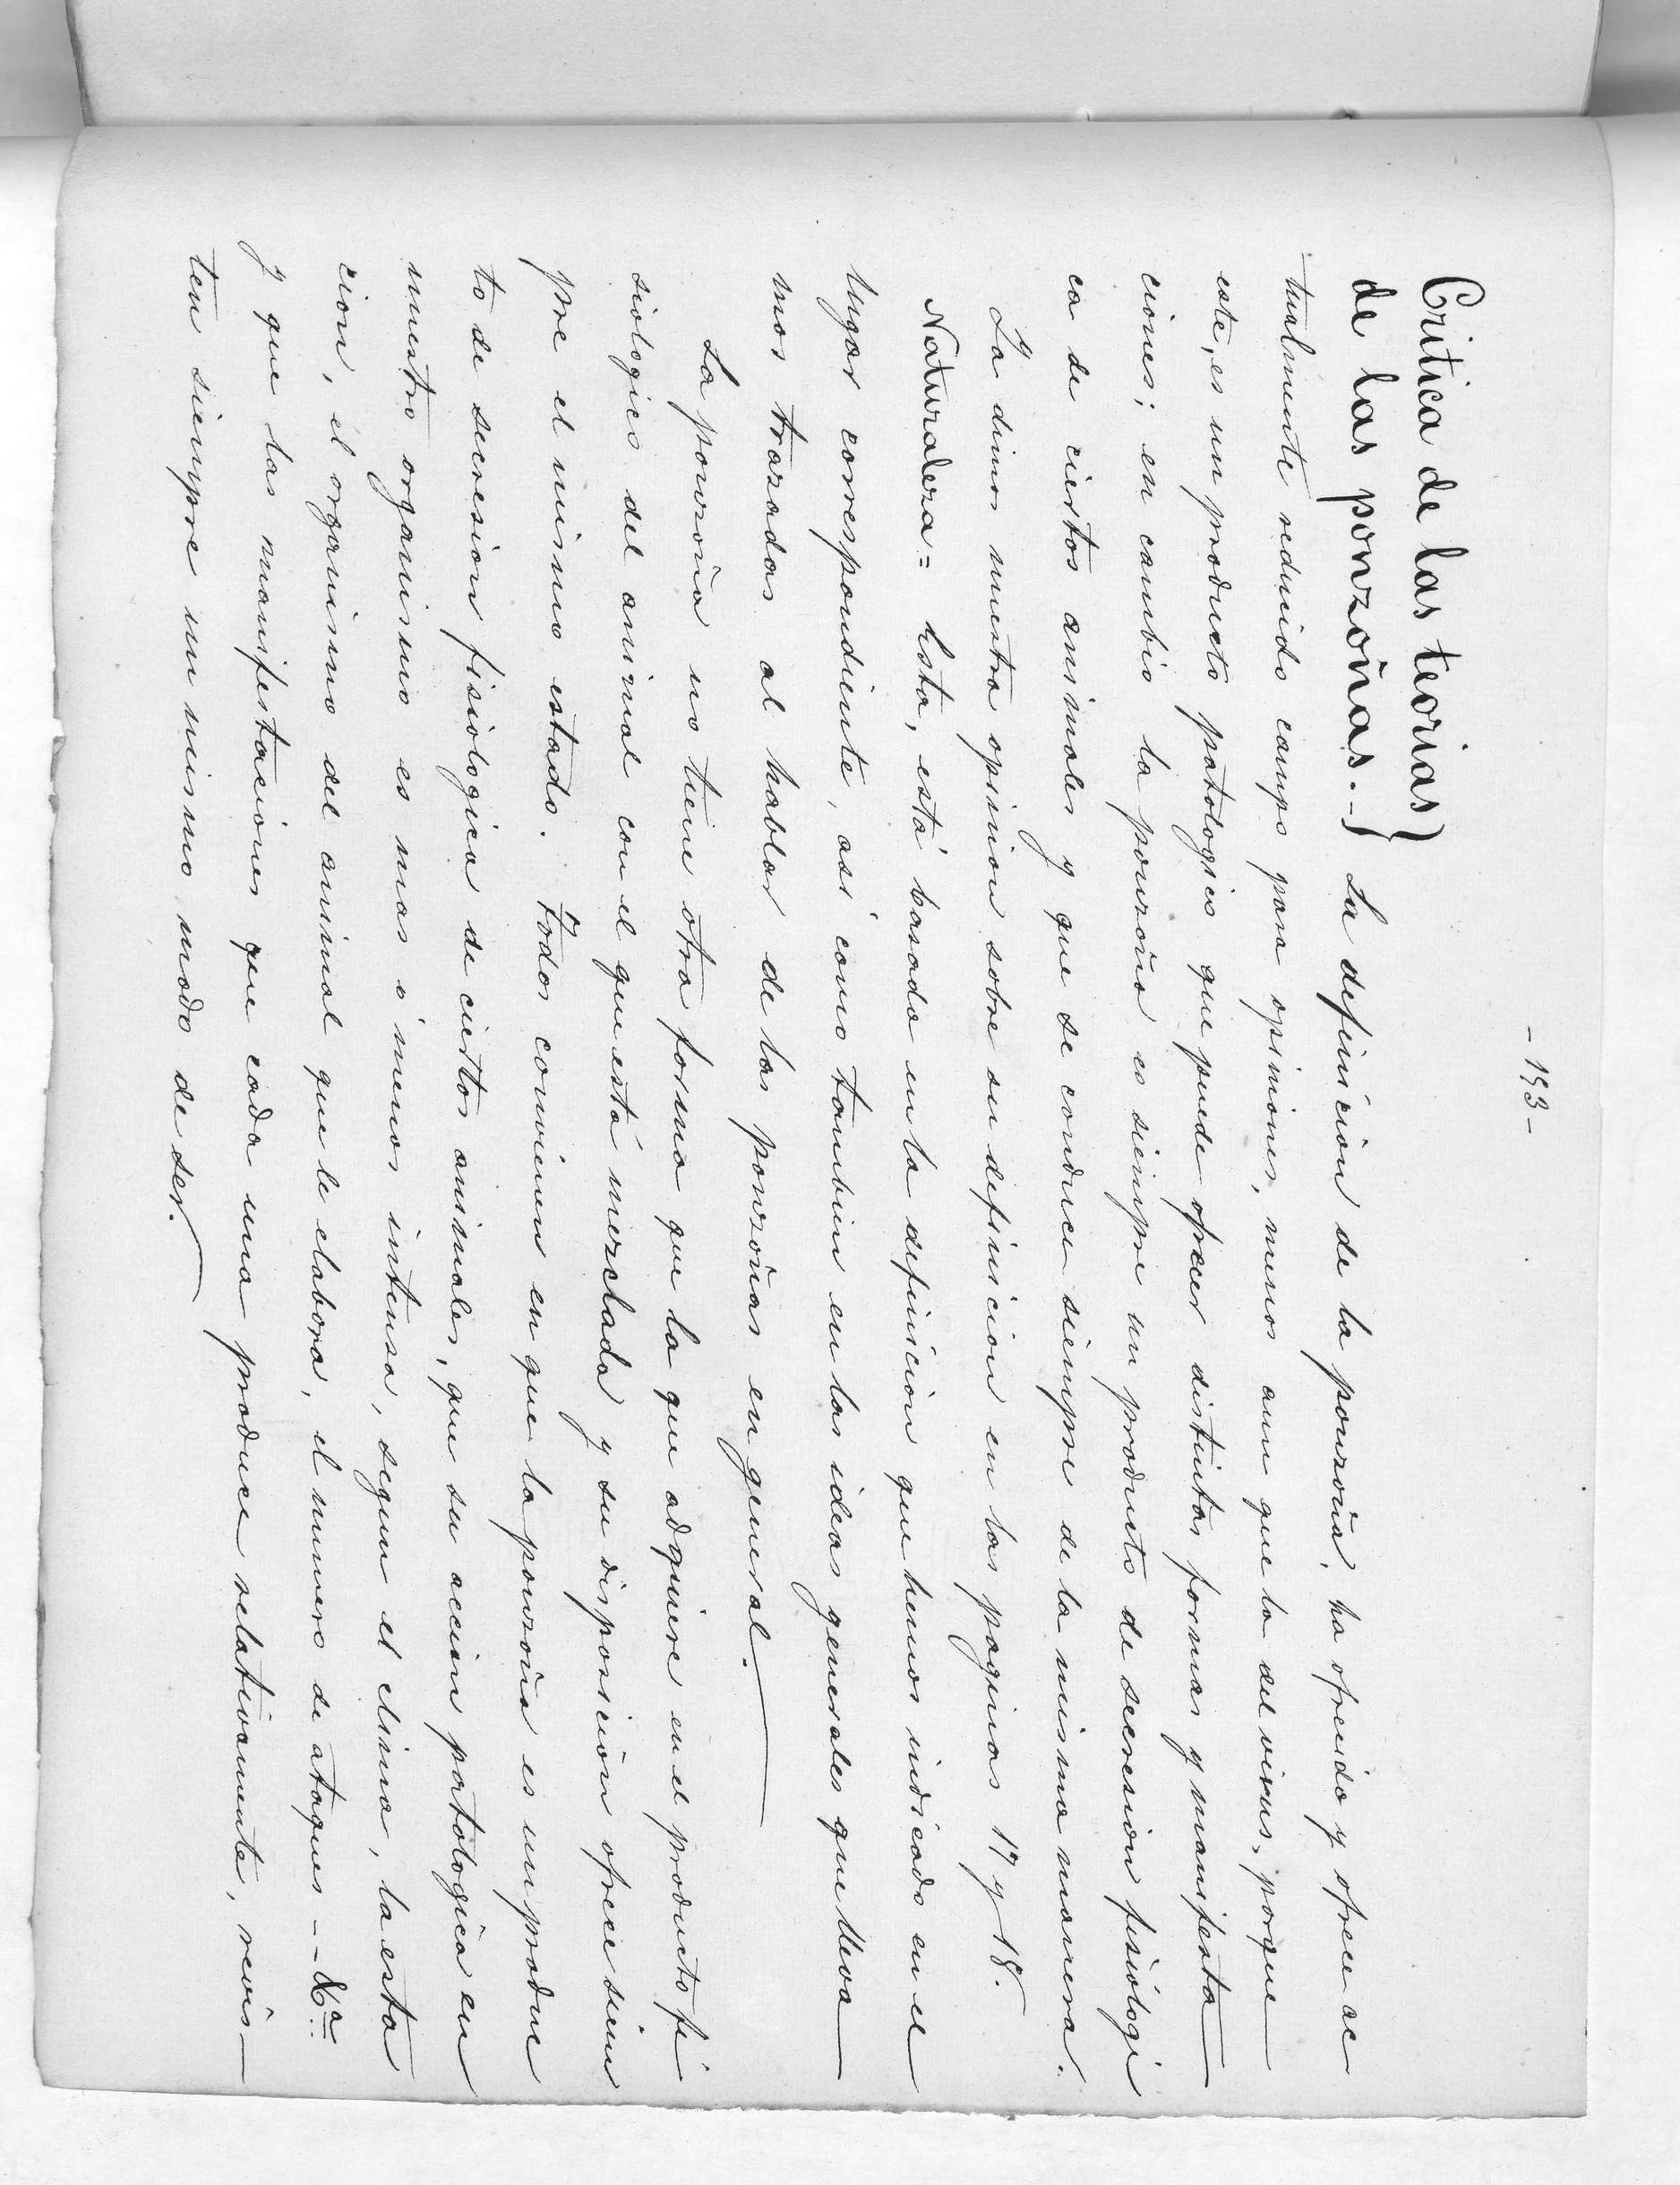 - 193 -
Critica de las teorias)
de las ponzoñas.-} La definicion de la ponzoña, ha ofrecido y ofrece ac
tualmente reducido campo para opiniones, menos aun que la del virus, porque
este, es un producto patologico que puede ofrecer distintas formas y manifesta
ciones; en cambio la ponzoña es siempre un producto de secresion fisiologi
ca de ciertos animales y que se conduce siempre de la misma manera.
Ya dimos nuestra opinion sobre su definicion en las paginas 17 y 18.
Naturaleza = Esta, está basada en la definicion que hemos indicado en el
lugar correspondiente, asi como tambien en las ideas generales que lleva
mos trazadas al hablar de las ponzoñas en general.
La ponzoña no tiene otra forma que la que adquiere en el producto fi
siologico del animal con el que está mezclada y su disposicion ofrece siem
pre el mismo estado. Todos convienen en que la ponzoña es un produc
to de secresion fisiologica de ciertos animales, que su accion patologica en
nuestro organismo es mas ó menos intensa, segun el clima, la esta
cion, el organismo del animal que le elabora, el numero de ataques -- &ª
y que las manifestaciones que cada una produce relativamente, revis-
ten siempre un mismo modo de ser.